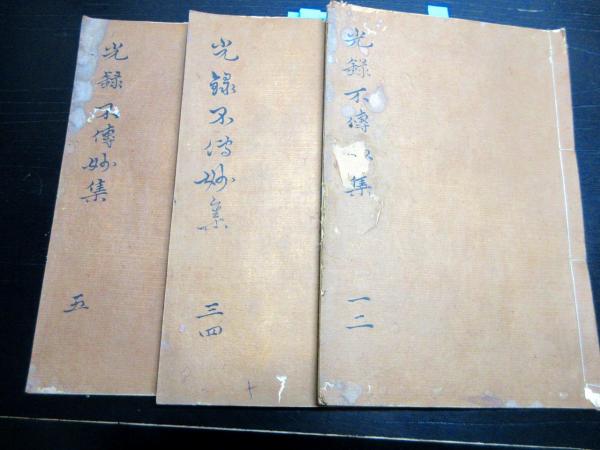 光録不傳集
一二
光録不傳妙集
三四
光録不傳妙集
五